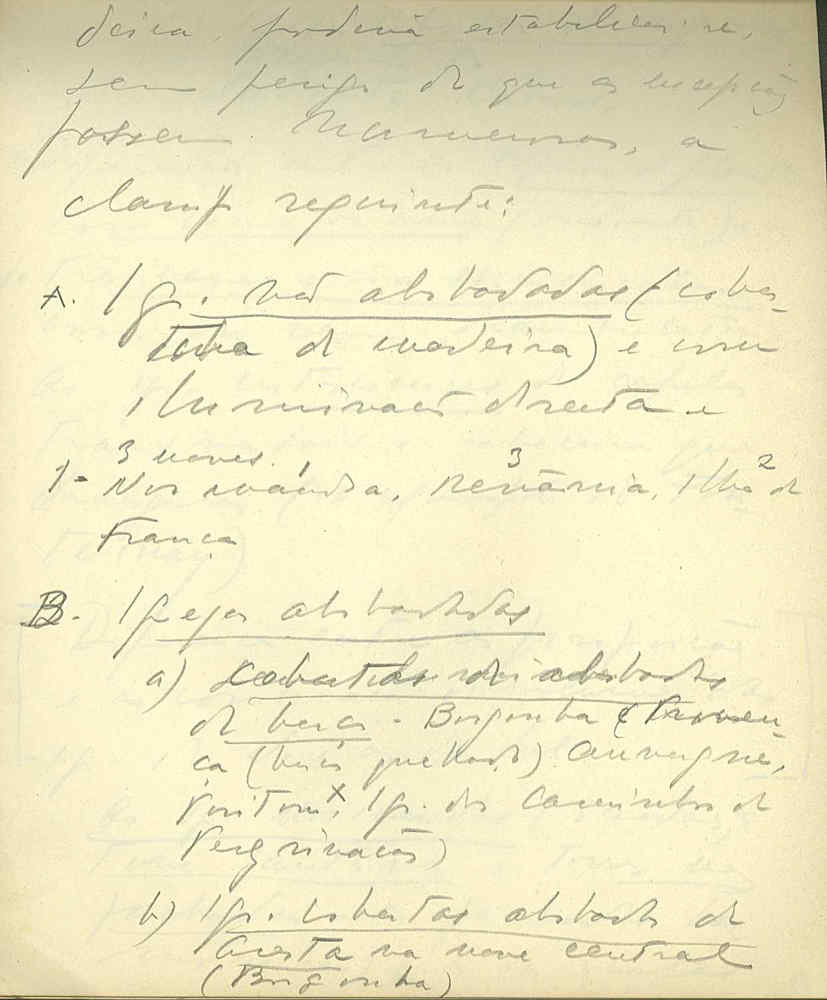 deira, poderia estabelecer-se,
sem perigo de que as excepções
fossem numerosas, a
seguinte:
A. Ig. não abobadadas (cober-
tura de madeira) e com
iluminação directa e
3 naves.
1- Normândia, Renânia, 3 Ilha 2 de
França
B. Igrejas abobadadas
a) cobertas abobadas
de berço - Borgonha Proven-
ça (berço quebrado) Auvergne,
Poitou, x Ig. dos Caminhos de
Peregrinação)
b) Ig. cobertas abobada de
aresta na nave central
(Borgonha)